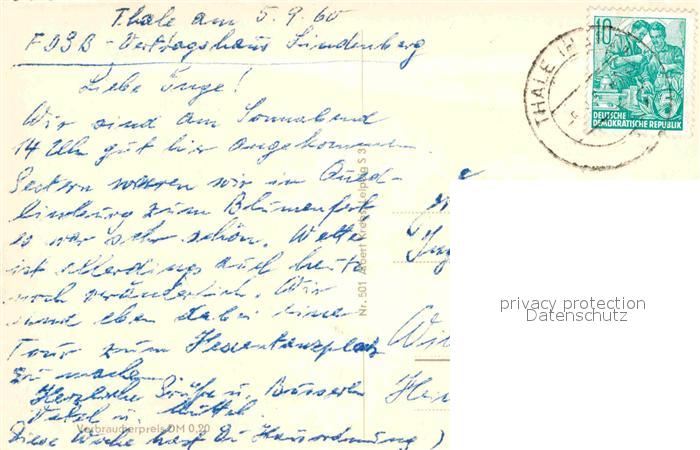 Thale am 5.9.60
FDGB-Vertragshaus Lindenberg
Liebe Inge!
Wir sind am Sonnabend
14 Uhr gut hier angekommen.
Gestern waren wir in Qued-
linburg zum Blumenfest
es war sehr schön. Wetter
ist allerdings auch heute
noch veränderlich. Wir
sind eben dabei eine
Tour zum Hexentanzplatz
zu machen
Herzliche Grüße u. Busserln
u. Mutti
Diese Woche hast Du Hausordnung)
Verbraucherpreis DM 0,20
Nr. 501 Albert Leipzig S 3
10
DEUTSCHE
DEMOKRATISCHE REPUBLIK
THALE (H
privacy protection
Datenschutz